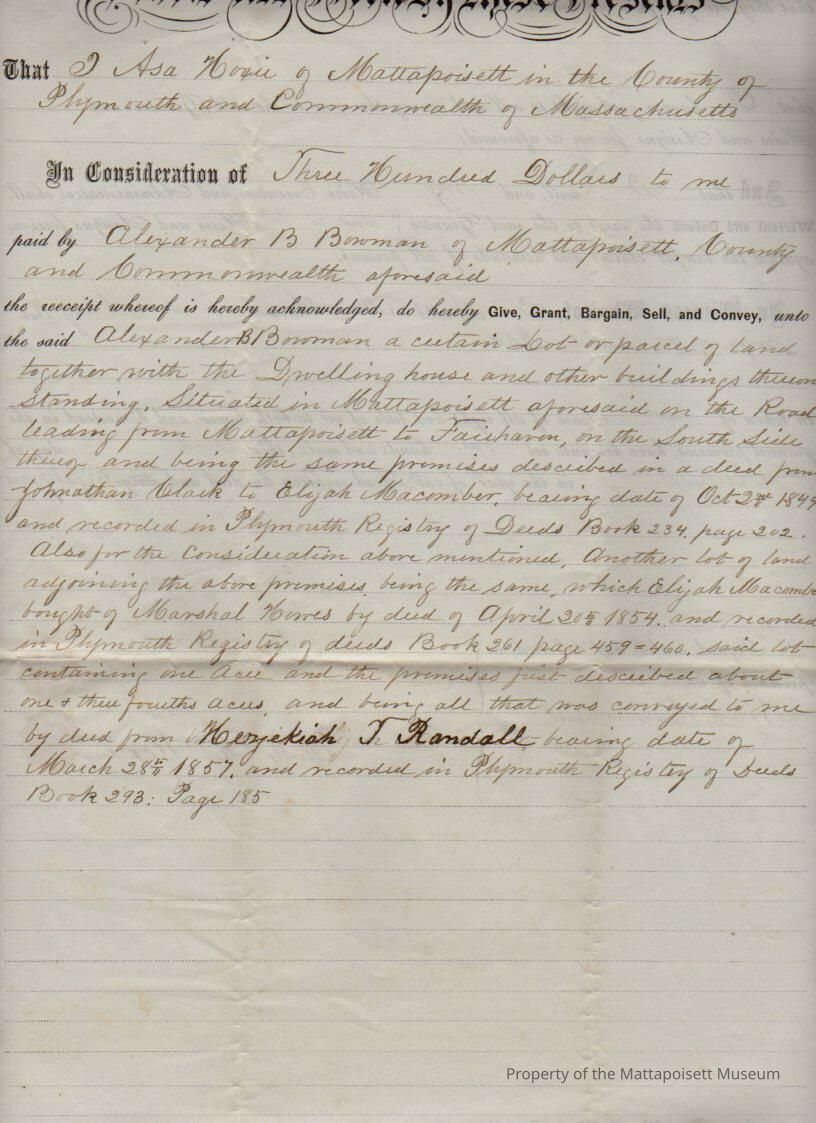 That I Asa Hoxie of Mattapoisett in the County of
Plymouth and Commonwealth of Massachusetts
In Consideration of Three Hundred Dollars to me
paid by Alexander B Bowman of Mattapoisett, County
and Commonwealth aforesaid
the receipt whereof is hereby acknowledged, do hereby Give, Grant, Bargain, Sell, and Convey, unto
the said Alexander B Bowman a certain Lot or parcel of land
together with the Dwelling house and other buildings thereon
standing. Situated in Mattapoisett aforesaid on the Road
leading from Mattapoisett to Fairhaven, on the South Side
thereof and being the same premises described in a deed from
Johnathan Clark to Elijah Macomber, bearing date of Oct 2nd 1849
and recorded in Plymouth Registry of Deeds Book 234, page 202.
Also for the Consideration above mentioned, Another lot of land
adjoining the above premises, being the same, which Elijah Macombe
bought of Marshal Howes by deed of April 20th 1854. and recorded
in Plymouth Registry of deeds Book 261 page 459=460. said lot
containing one Acre and the premises first described about
one & three fourths acres, and being all that was conveyed to me
by deed from Hezjekiah T. Randall bearing date of
March 28th 1857. and recorded in Plymouth Registry of Deeds
Book 293: Page 185
Property of the Mattapoisett Museum